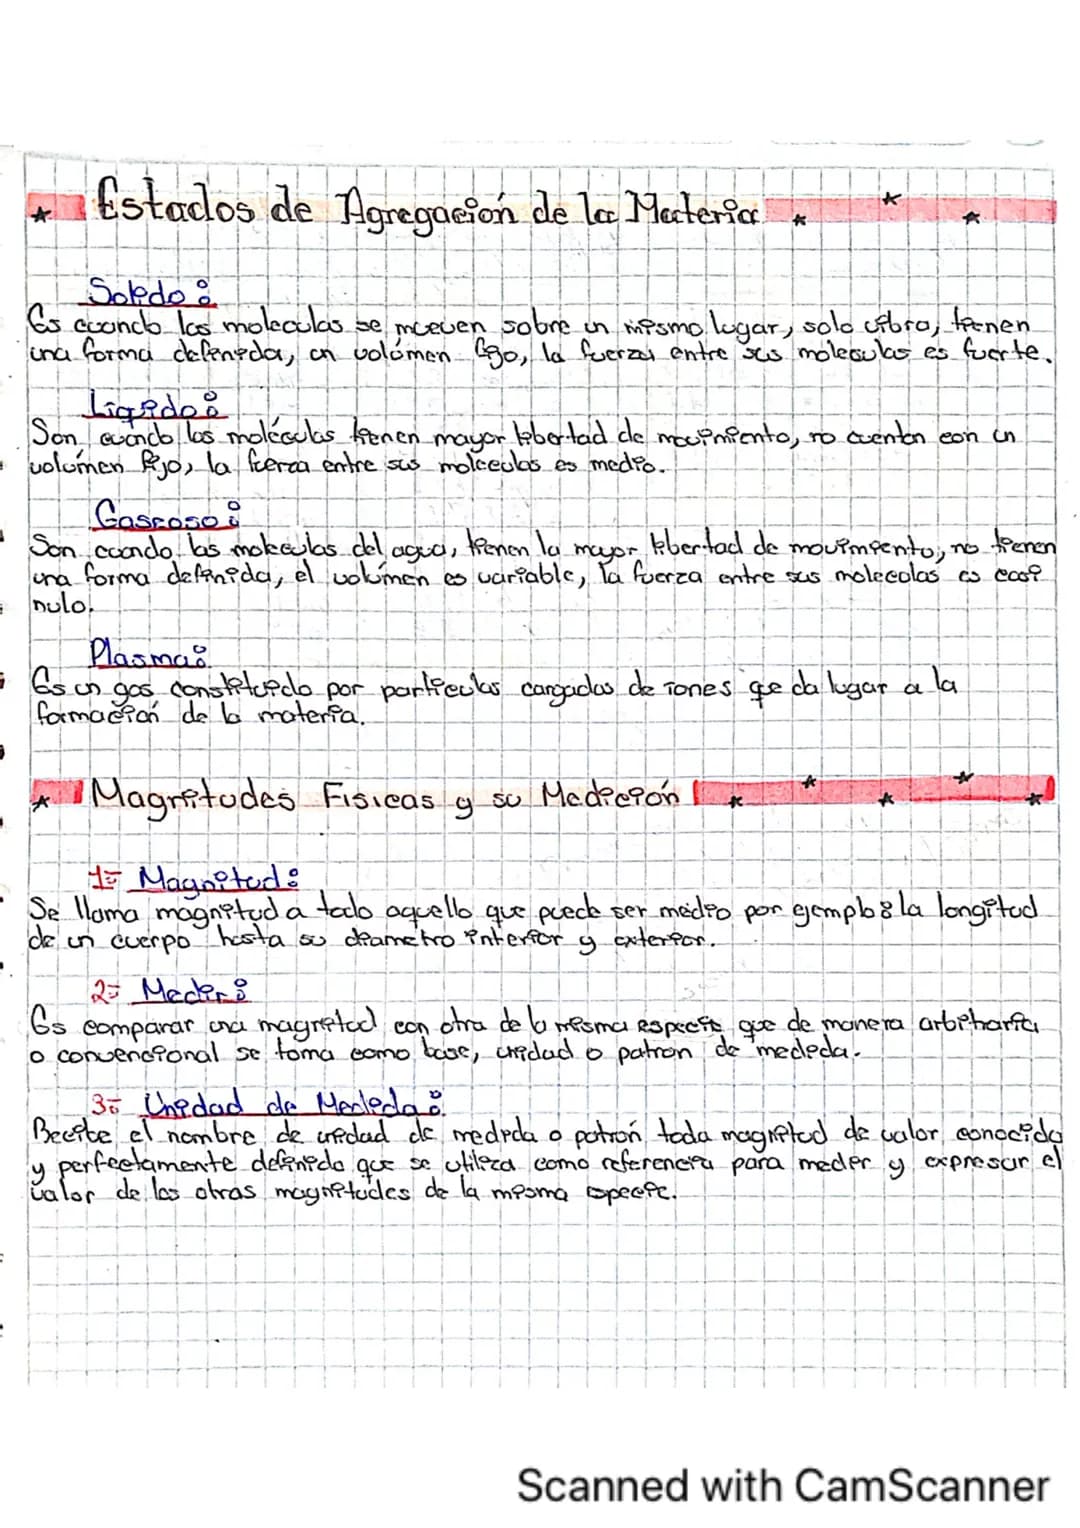 Estados de Agregación de la Materia
Solido:
Es cuando las moleculas se mueven sobre un mismo lugar, solo vibra, tienen
una forma definida, un volúmen fijo, la fuerza entre sus moleculas es fuerte.
Liquido:
Son cuando las moléculas tienen mayor libertad de movimiento, no cuentan con un
volúmen fijo, la fuerza entre sus moleculas es medio.
Gaseoso:
Son cuando las moleculas del agua, tienen la mayor libertad de movimiento, no tienen
una forma definida, el volúmen es variable, la fuerza entre sus moleculas es casi
nulo.
Plasma:
Es un gas constituido por particulas cargadas de iones que da lugar a la
formación de la materia.
Magnitudes Fisicas y su Medición
1= Magnitud:
Se llama magnitud a todo aquello que puede ser medio por ejemplo: la longitud
de un cuerpo hasta su diametro interior y exterior.
2= Medir:
Es comparar una magnitud con otra de la misma especie que de manera arbitraria
o convencional se toma como base, unidad o patron de medida.
3= Unidad de Medida:
Recibe el nombre de unidad de medida o patrón toda magnitud de valor conocido
y perfectamente definido que se utiliza como referencia para medir y expresar el
valor de las otras magnitudes de la misma especie.
Scanned with CamScanner